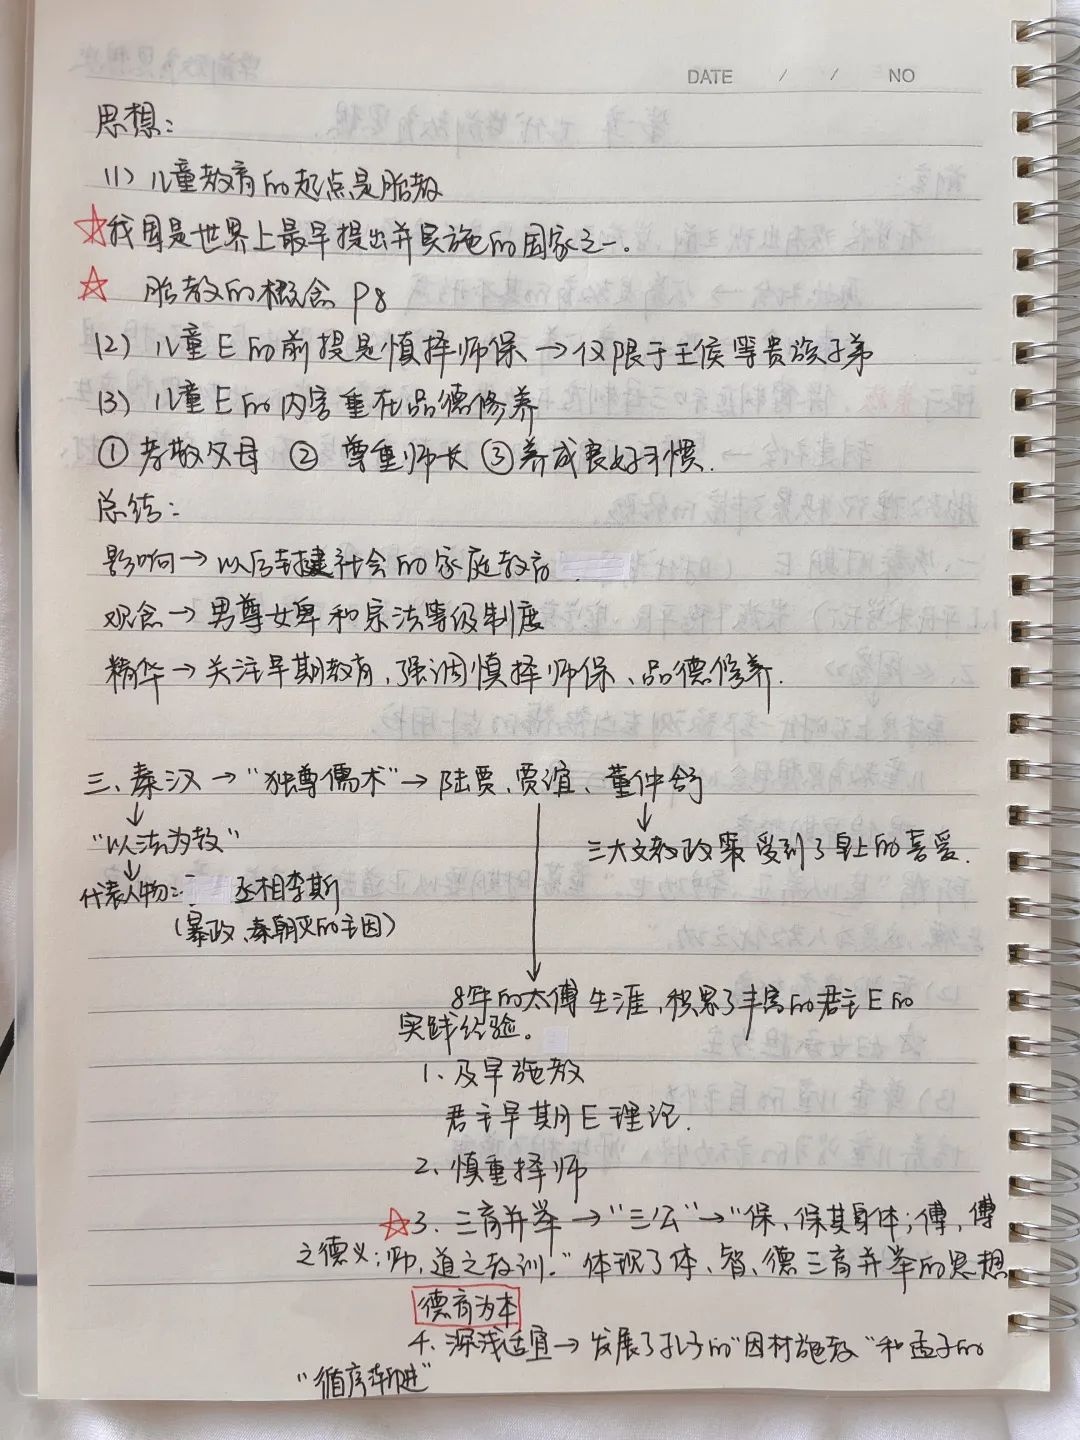 DATE / / NO
思想：
(1) 儿童教育的起点是胎教
☆我国是世界上最早提出并实施的国家之一.
☆ 胎教的概念 P8
(2) 儿童E的前提是慎择师保→仅限于王侯等贵族子弟
(3) 儿童E的内容重在品德修养
① 孝敬父母 ② 尊重师长 ③养成良好习惯.
总结：
影响→以后封建社会的家庭教育
观念→男尊女卑和宗法等级制度
精华→关注早期教育,强调慎择师保、品德修养.
三、秦汉→"独尊儒术"→陆贾、贾谊、董仲舒
↓
"以法为教"
三大文教政策受到了皇上的喜爱.
↓
代表人物： 丞相李斯
(暴政、秦朝灭的主因)
8年的太傅生涯,积累了丰富的君主E的
实践经验。
1、及早施教
君主早期E理论.
2、慎重择师
☆3. 三育并举→"三公"→"保,保其身体；傅,傅
之德义；师,道之教训."体现了体、智、德三育并举的思想
德育为本
4. 深浅适宜→发展了孔子的"因材施教"和孟子的
"循序渐进"